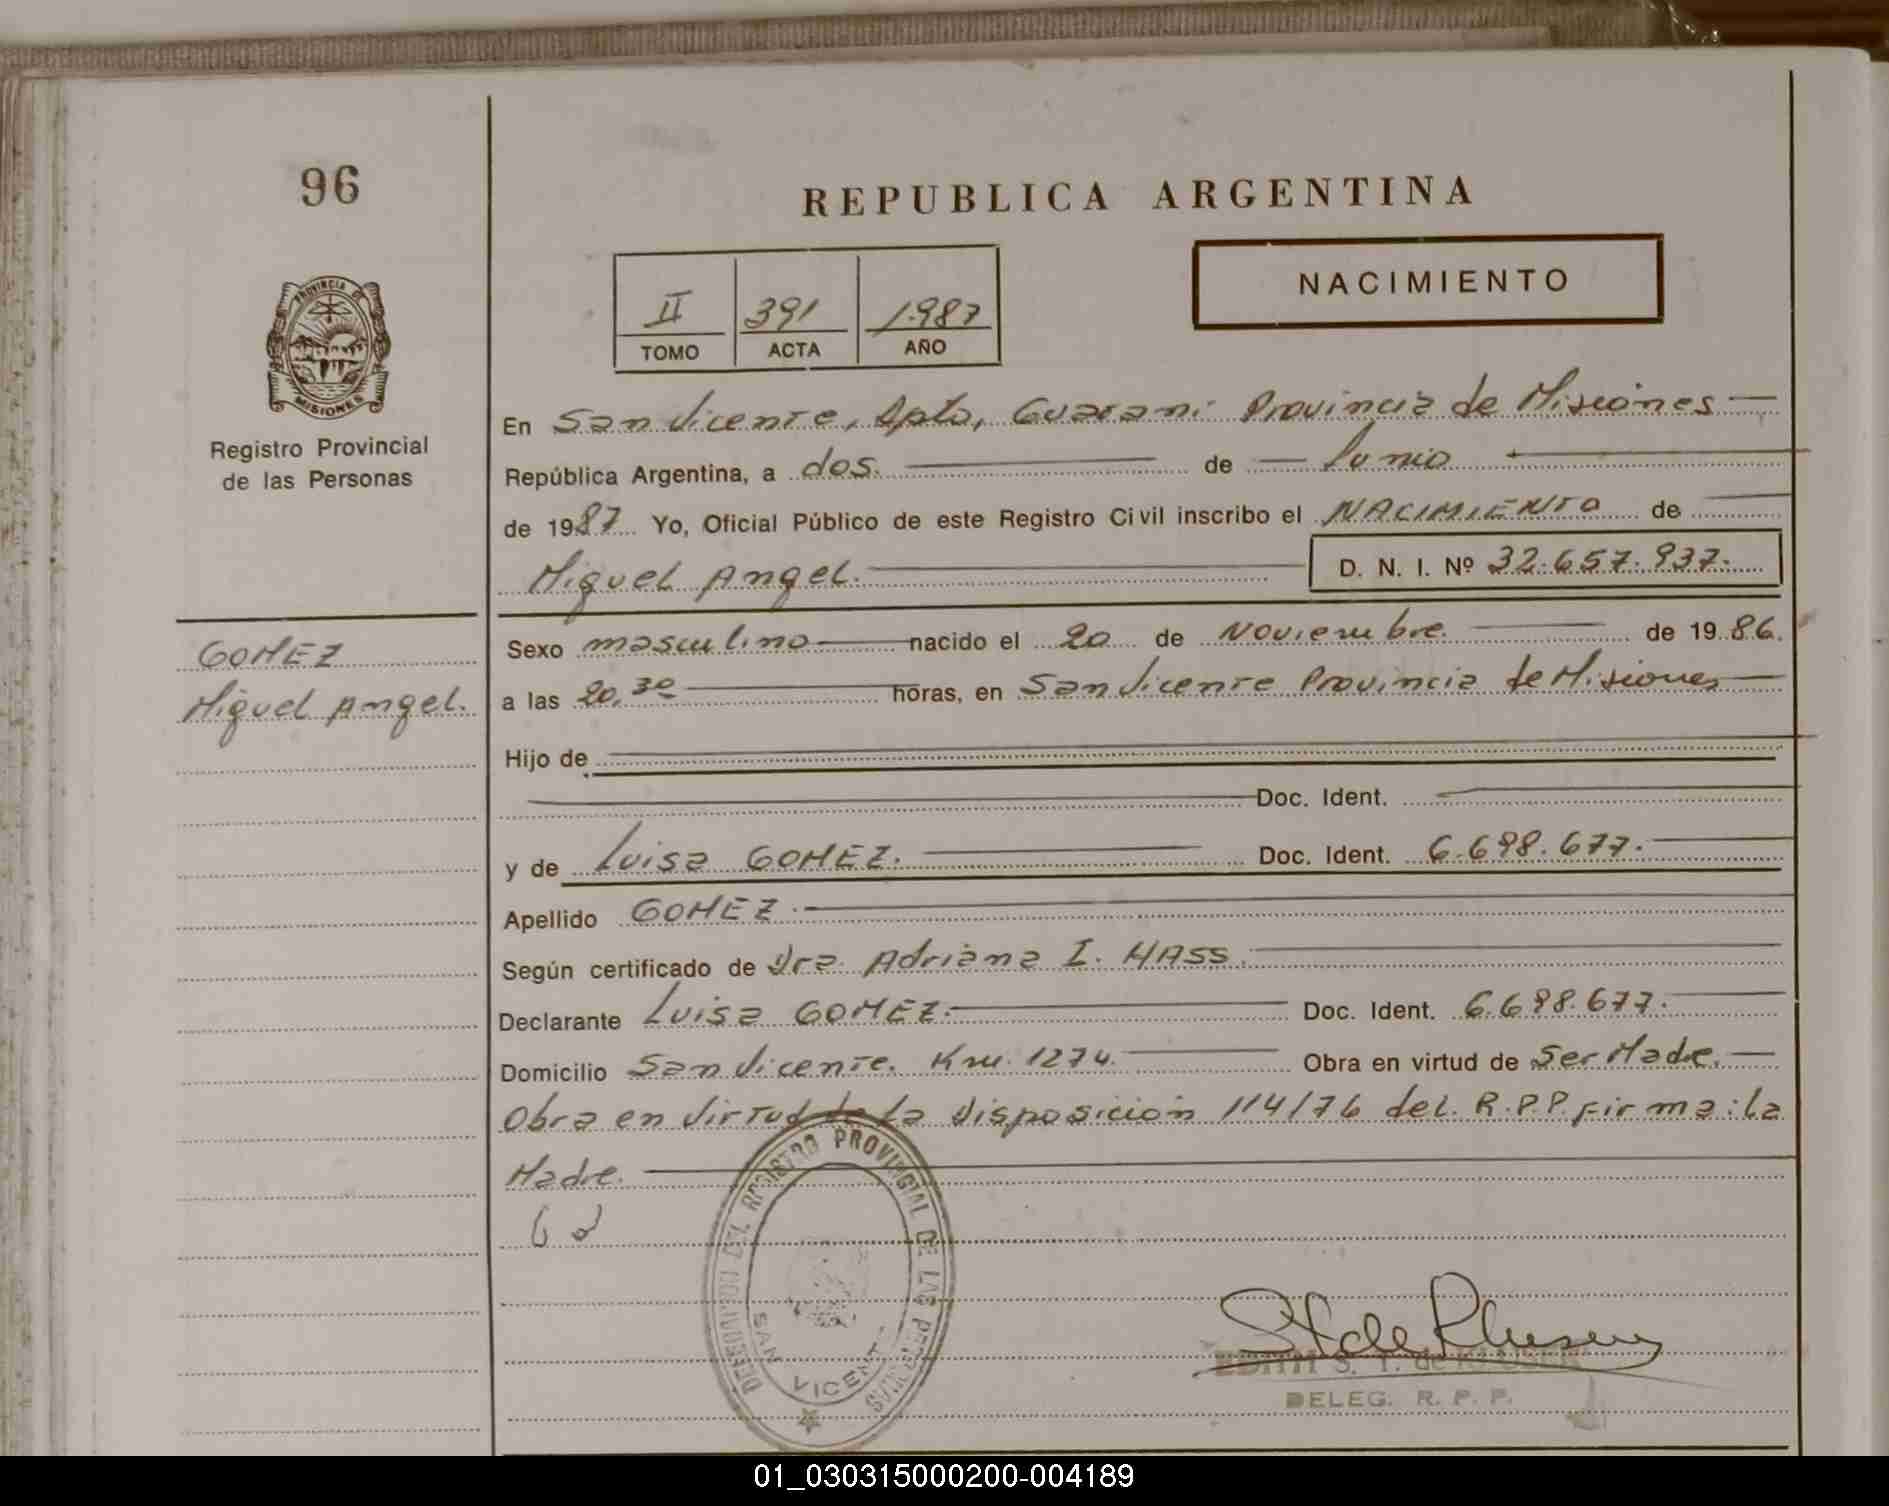 96
REPUBLICA ARGENTINA
NACIMIENTO
II 391 1.987
TOMO ACTA AÑO
PROVINCIA DE
MISIONES
Registro Provincial
de las Personas
En San Vicente, Dpto, Guarani Provincia de Misiones
República Argentina, a dos. de Junio
de 1987 Yo, Oficial Público de este Registro Civil inscribo el NACIMIENTO de
Miguel Angel. D. N. I. Nº 32.657.937.
GOMEZ
Miguel Angel.
Sexo masculino nacido el 20 de Noviembre. de 1986.
a las 20,30 horas, en San Vicente Provincia de Misiones
Hijo de
Doc. Ident.
y de Luisa GOMEZ. Doc. Ident. 6.698.677.
Apellido GOMEZ.
Según certificado de Dra. Adriana I. HASS.
Declarante Luisa GOMEZ. Doc. Ident. 6.698.677.
Domicilio San Vicente. Km. 1274. Obra en virtud de Ser Madre.
Obra en Virtud de la Disposición 114/76 del. R.P.P. Firma: la
Madre.
DEL REGISTRO PROVINCIAL DE LAS PERSONAS
SAN VICENTE
EDITH S. T. de KLUSENER
DELEG. R. P. P.
01_030315000200-004189